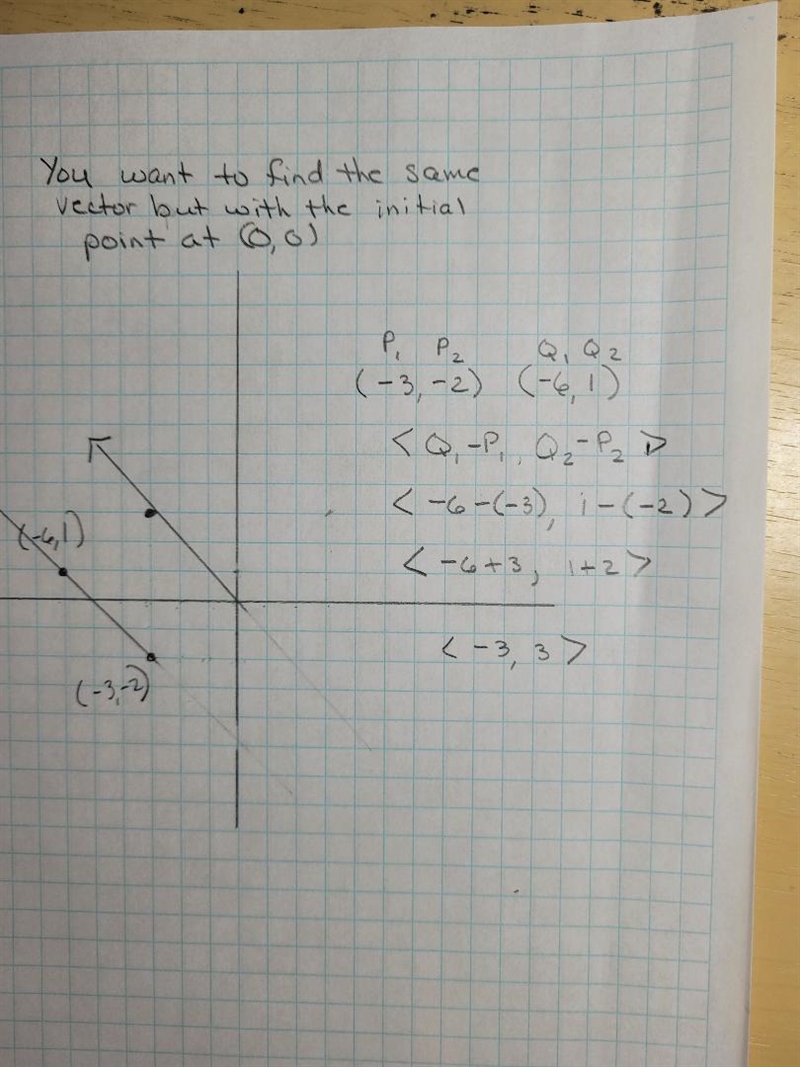 You want to find the same
vector but with the initial
point at (0,0)
P₁ P₂ Q₁ Q₂
(-3,-2) (-6,1)
<Q₁-P₁, Q₂-P₂>
<-6-(-3), 1-(-2)>
(-6,1)
<-6+3, 1+2>
<-3, 3>
(-3,-2)